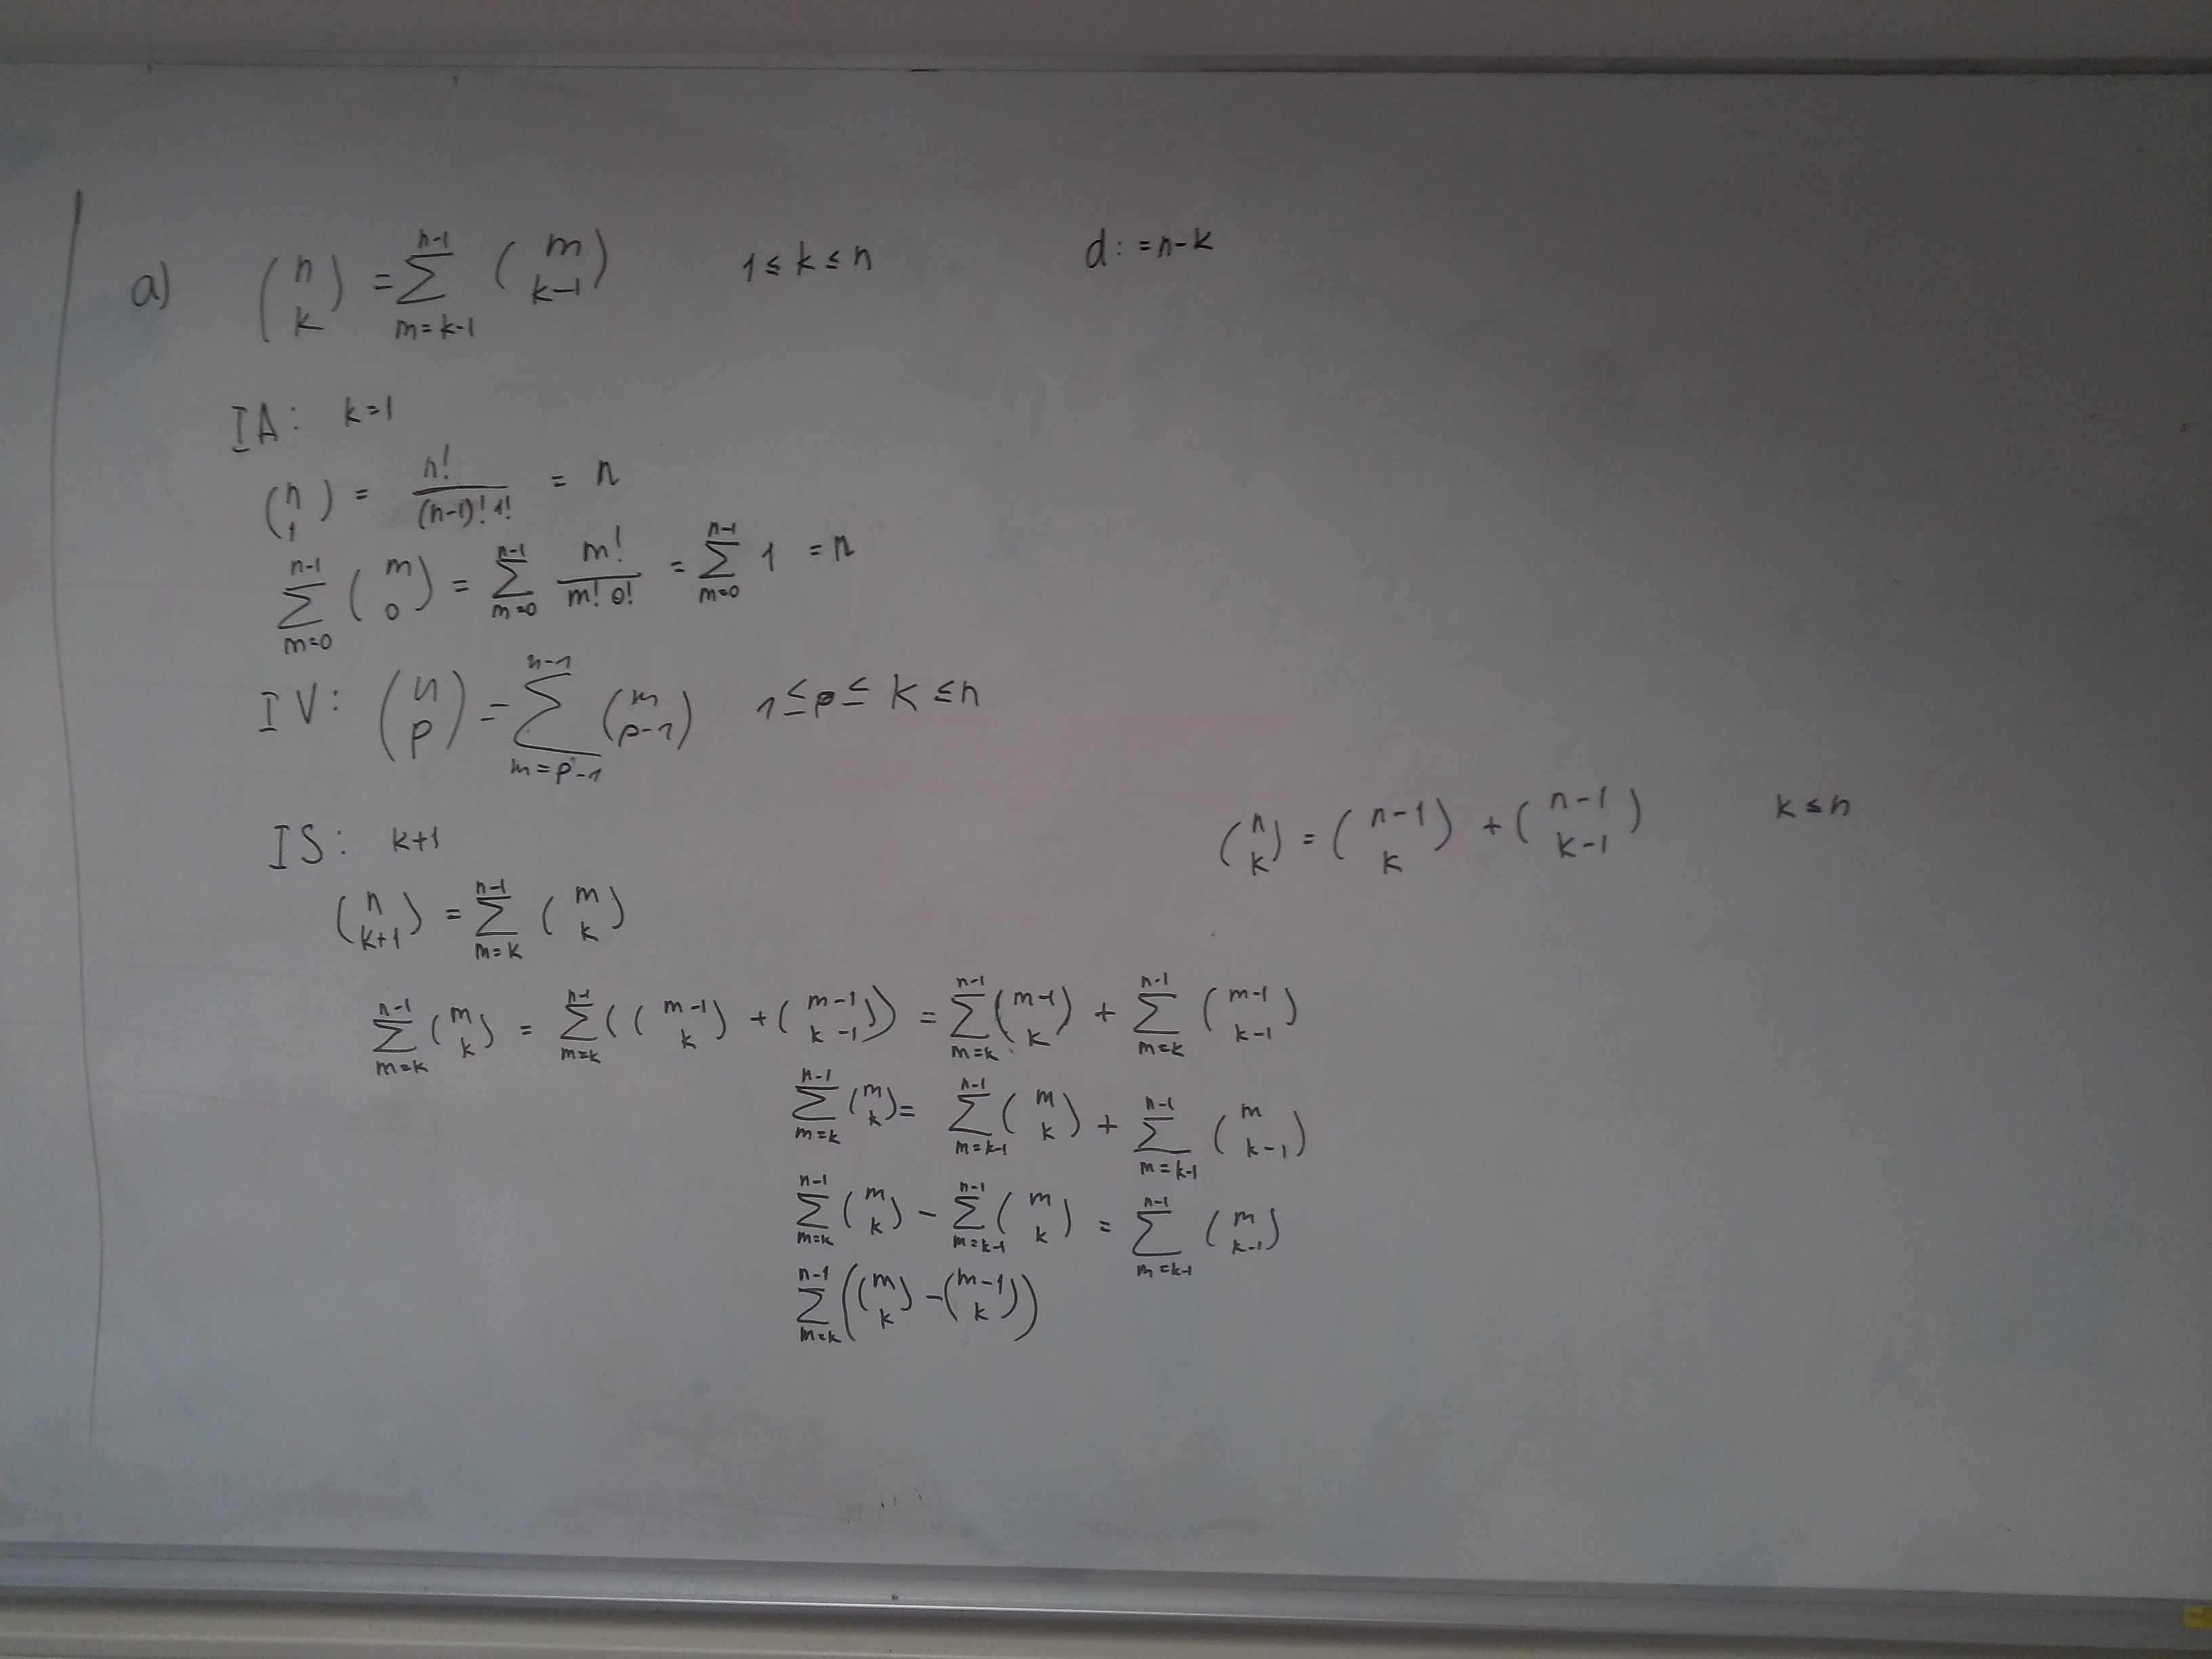 a) $\binom{n}{k} = \sum_{m=k-1}^{n-1} \binom{m}{k-1}$ $1 \le k \le n$ $d := n-k$
IA: $k=1$
$\binom{n}{1} = \frac{n!}{(n-1)!\,1!} = n$
$\sum_{m=0}^{n-1} \binom{m}{0} = \sum_{m=0}^{n-1} \frac{m!}{m!\,0!} = \sum_{m=0}^{n-1} 1 = n$
IV: $\binom{n}{p} = \sum_{m=p-1}^{n-1} \binom{m}{p-1}$ $1 \le p \le k \le n$
IS: $k+1$ $\binom{n}{k} = \binom{n-1}{k} + \binom{n-1}{k-1}$ $k \le n$
$\binom{n}{k+1} = \sum_{m=k}^{n-1} \binom{m}{k}$
$\sum_{m=k}^{n-1} \binom{m}{k} = \sum_{m=k}^{n-1} \left( \binom{m-1}{k} + \binom{m-1}{k-1} \right) = \sum_{m=k}^{n-1} \binom{m-1}{k} + \sum_{m=k}^{n-1} \binom{m-1}{k-1}$
$\sum_{m=k}^{n-1} \binom{m}{k} = \sum_{m=k-1}^{n-1} \binom{m}{k} + \sum_{m=k-1}^{n-1} \binom{m}{k-1}$
$\sum_{m=k}^{n-1} \binom{m}{k} - \sum_{m=k-1}^{n-1} \binom{m}{k} = \sum_{m=k-1}^{n-1} \binom{m}{k-1}$
$\sum_{m=k}^{n-1} \left( \binom{m}{k} - \binom{m-1}{k} \right)$